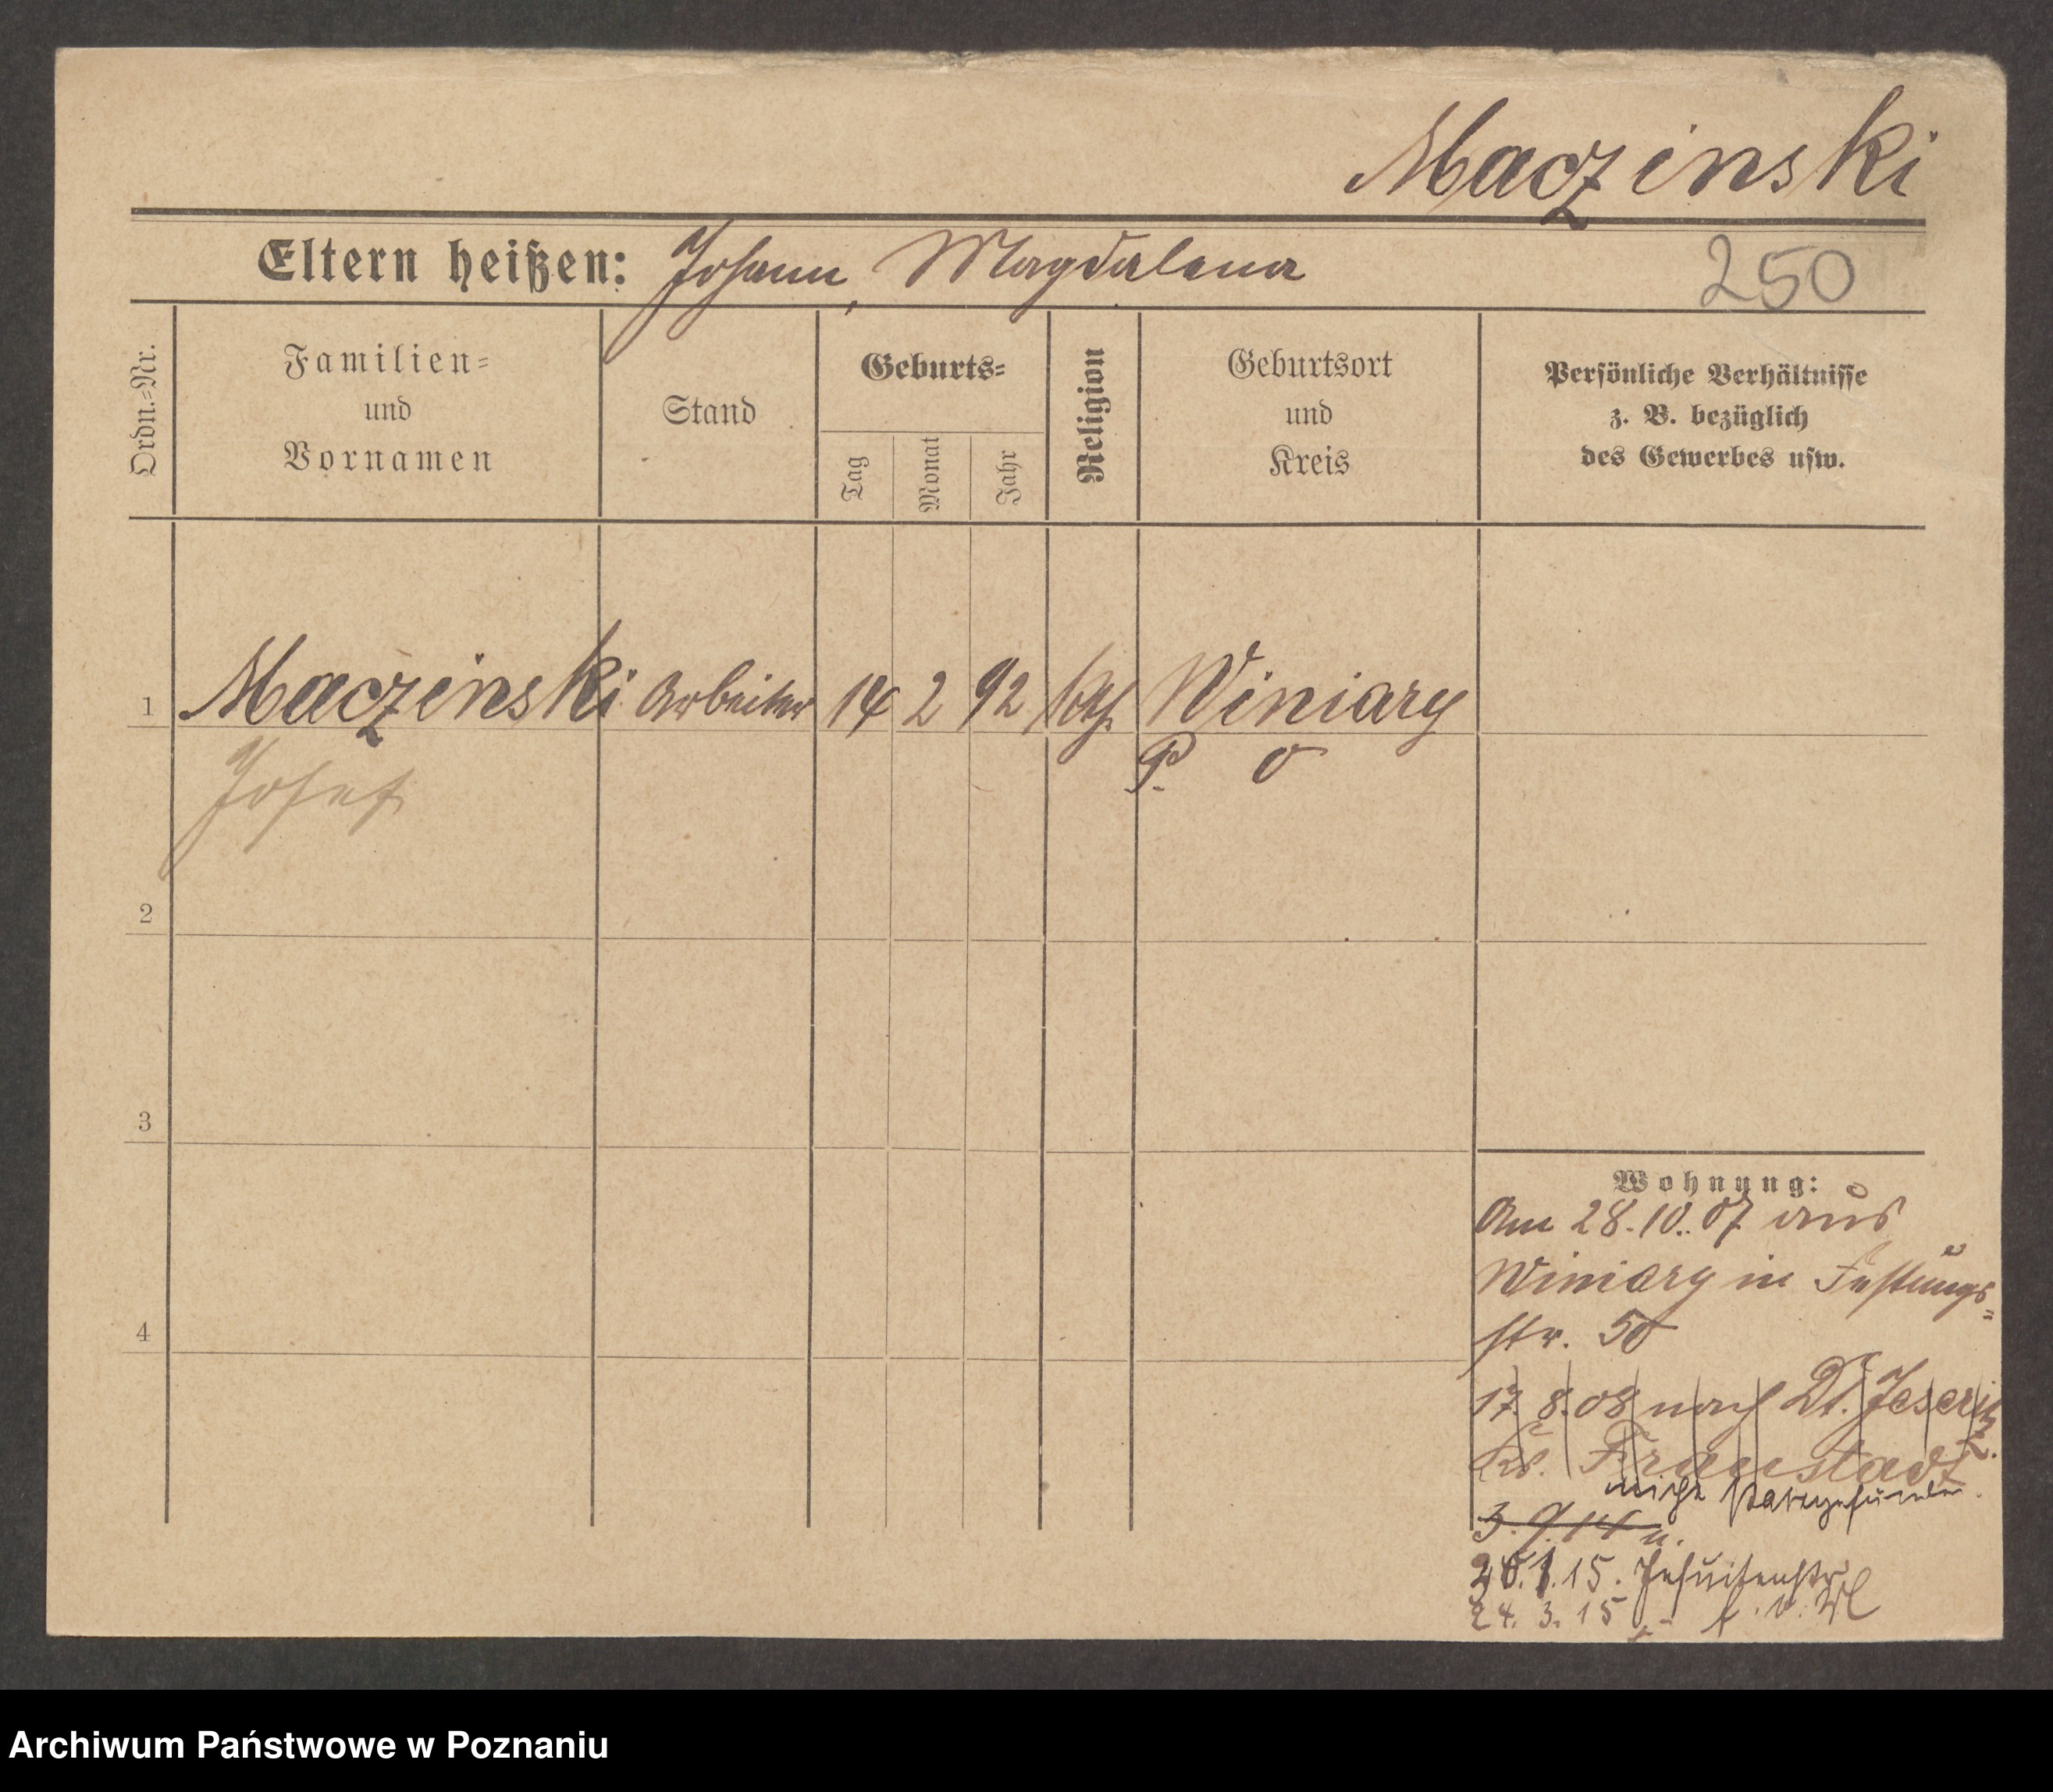 Maczinski
Eltern heißen: Johann, Magdalena
250
Ordn.-Nr.
Familien- und Vornamen
Stand
Geburts-
Tag
Monat
Jahr
Religion
Geburtsort und Kreis
Persönliche Verhältnisse z. B. bezüglich des Gewerbes usw.
1 Maczinski Arbeiter 14 2 92 kth. Winiary
P. O
Josef
2
3
4
Wohnung:
Am 28.10.07 aus
Winiary in Festungs-
str. 50
17.8.08 nach Dt. Jeseritz
Kr. Fraustadt
nicht stattgefunden.
3.9.14 u.
26.1.15. Jesuitenstr
24.3.15
Archiwum Państwowe w Poznaniu